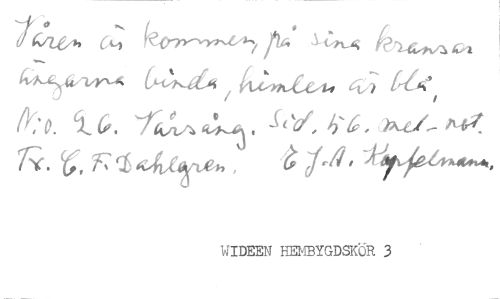 Våren är kommen, på sina kransar
ängarna binda, himlen är blå,
N:o. 26. Vårsång. Sid. 56. mel-not.
Tx. C. F. Dahlgren. C J. A. Kapfelmann.
WIDEEN HEMBYGDSKÖR 3